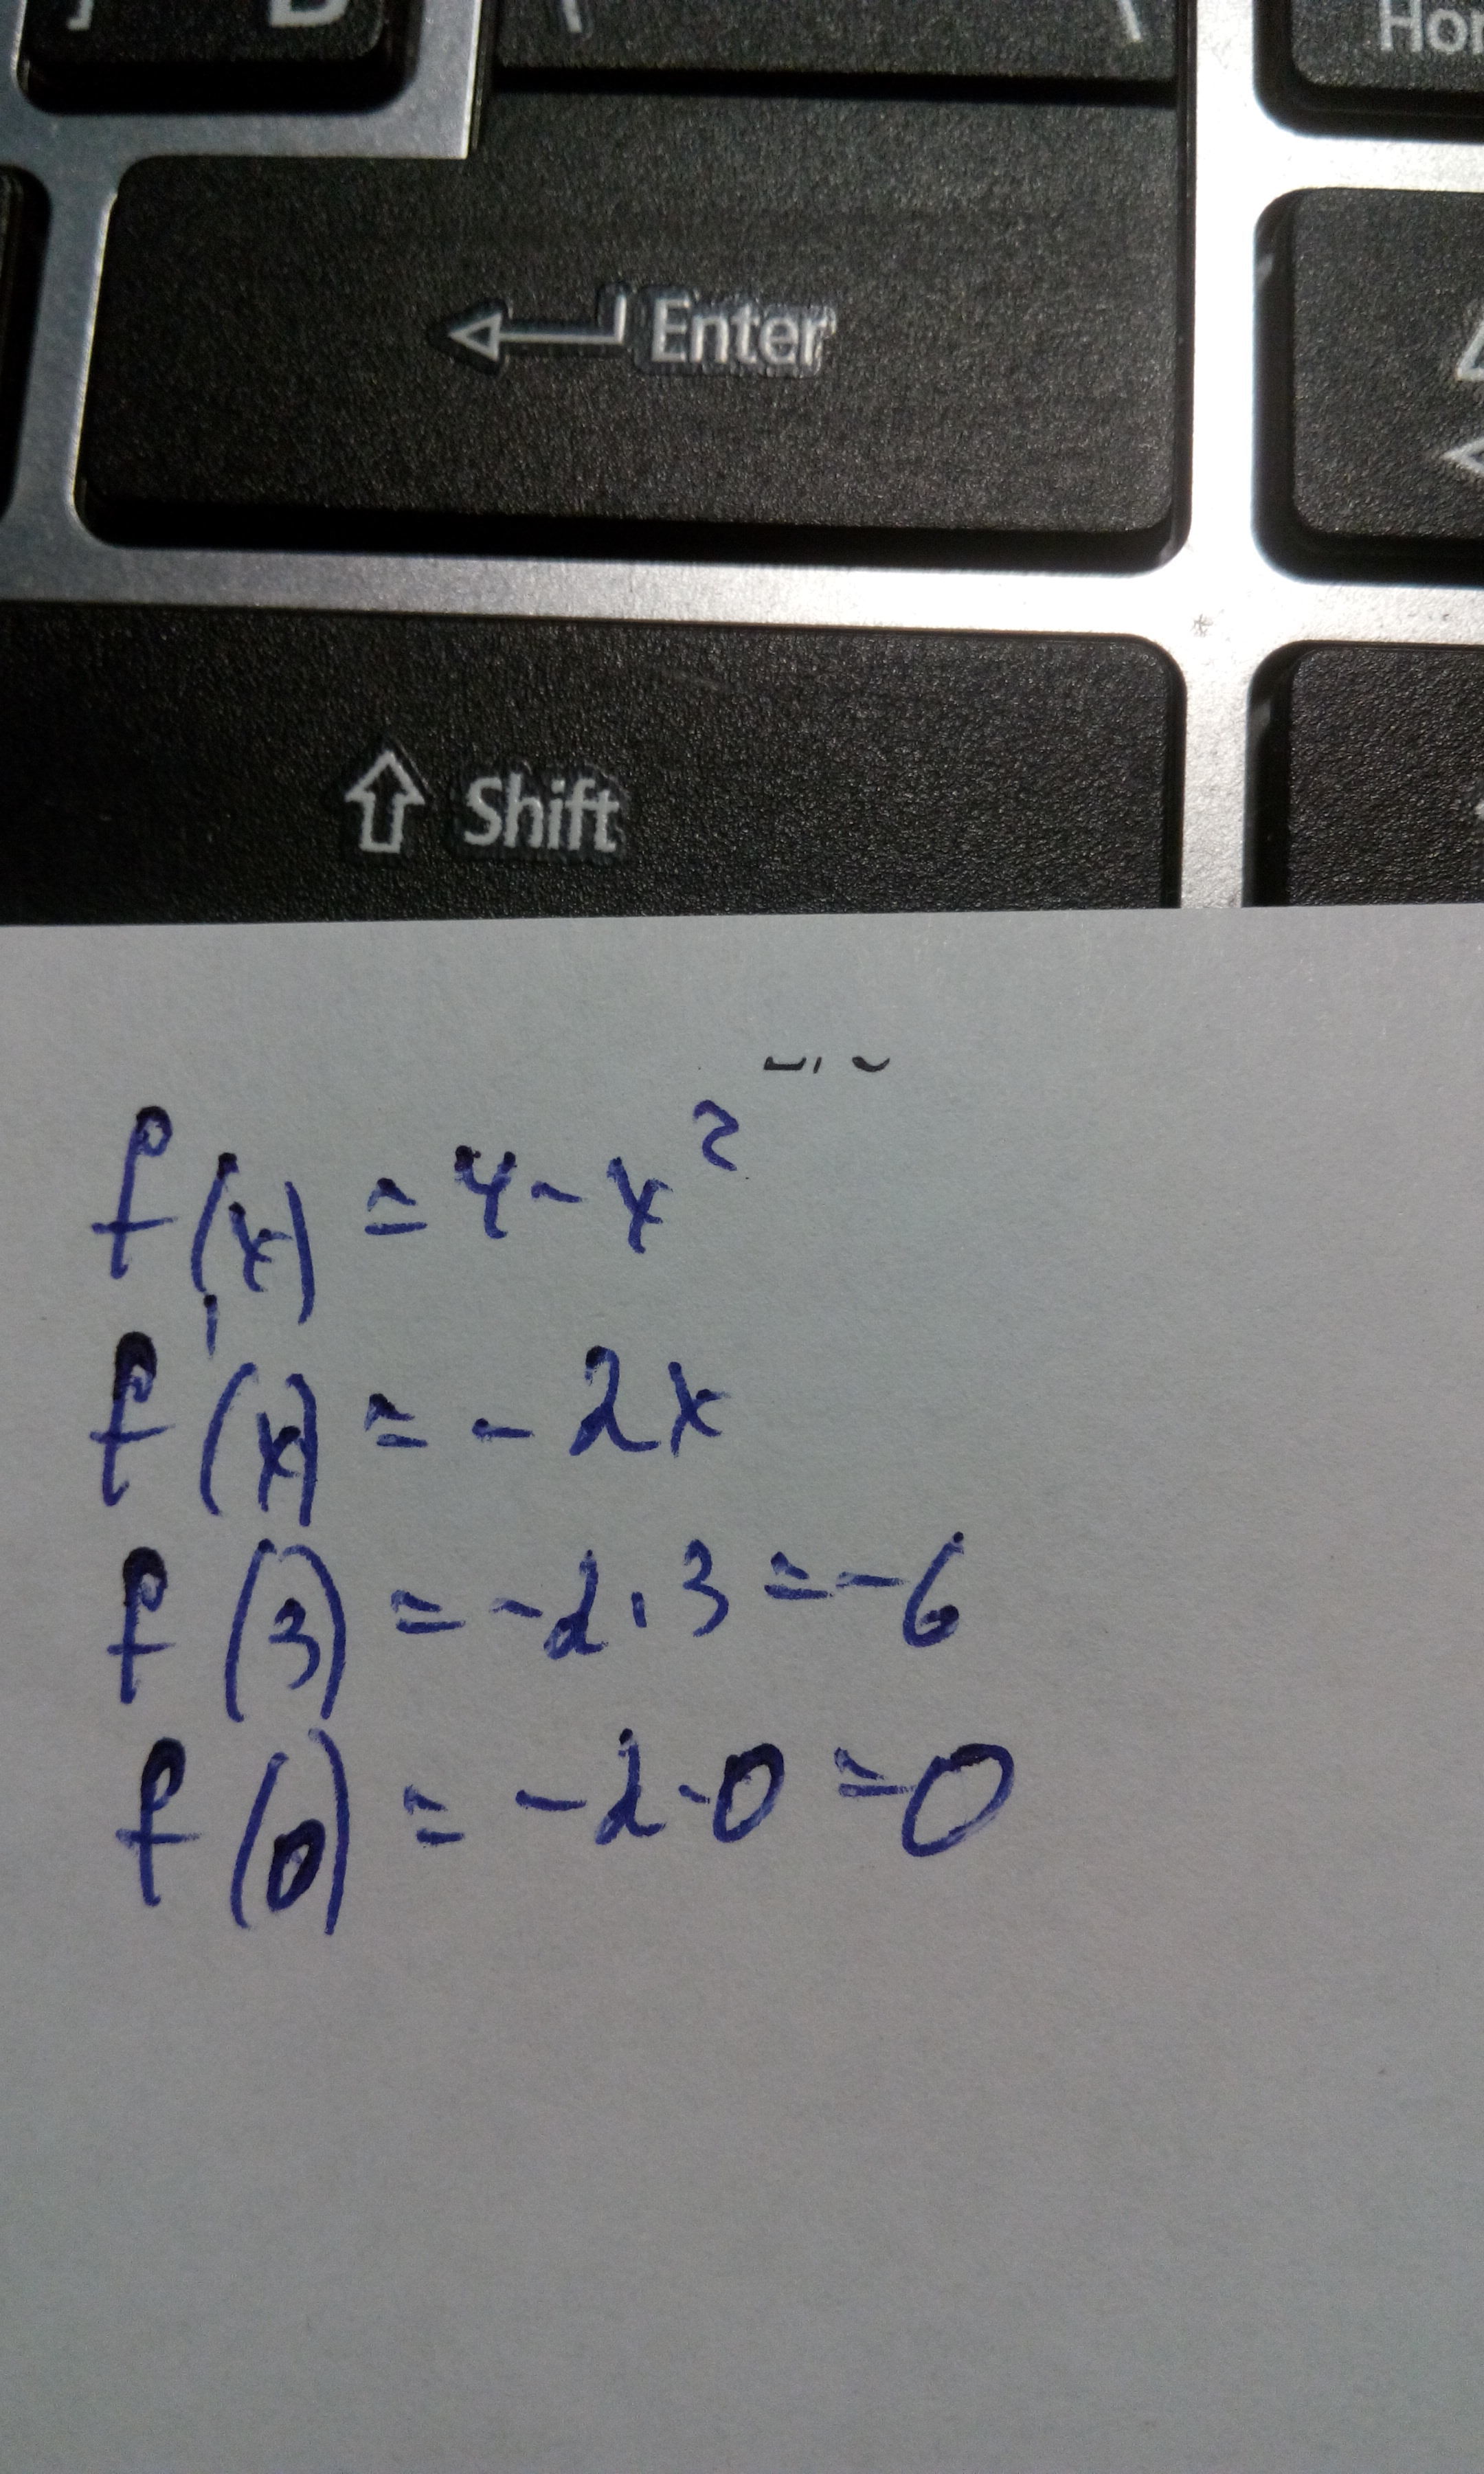 Hom
Enter
Shift
f(x) = 4 - x²
f'(x) = - 2x
f(3) = -2·3 = -6
f(0) = -2·0 = 0